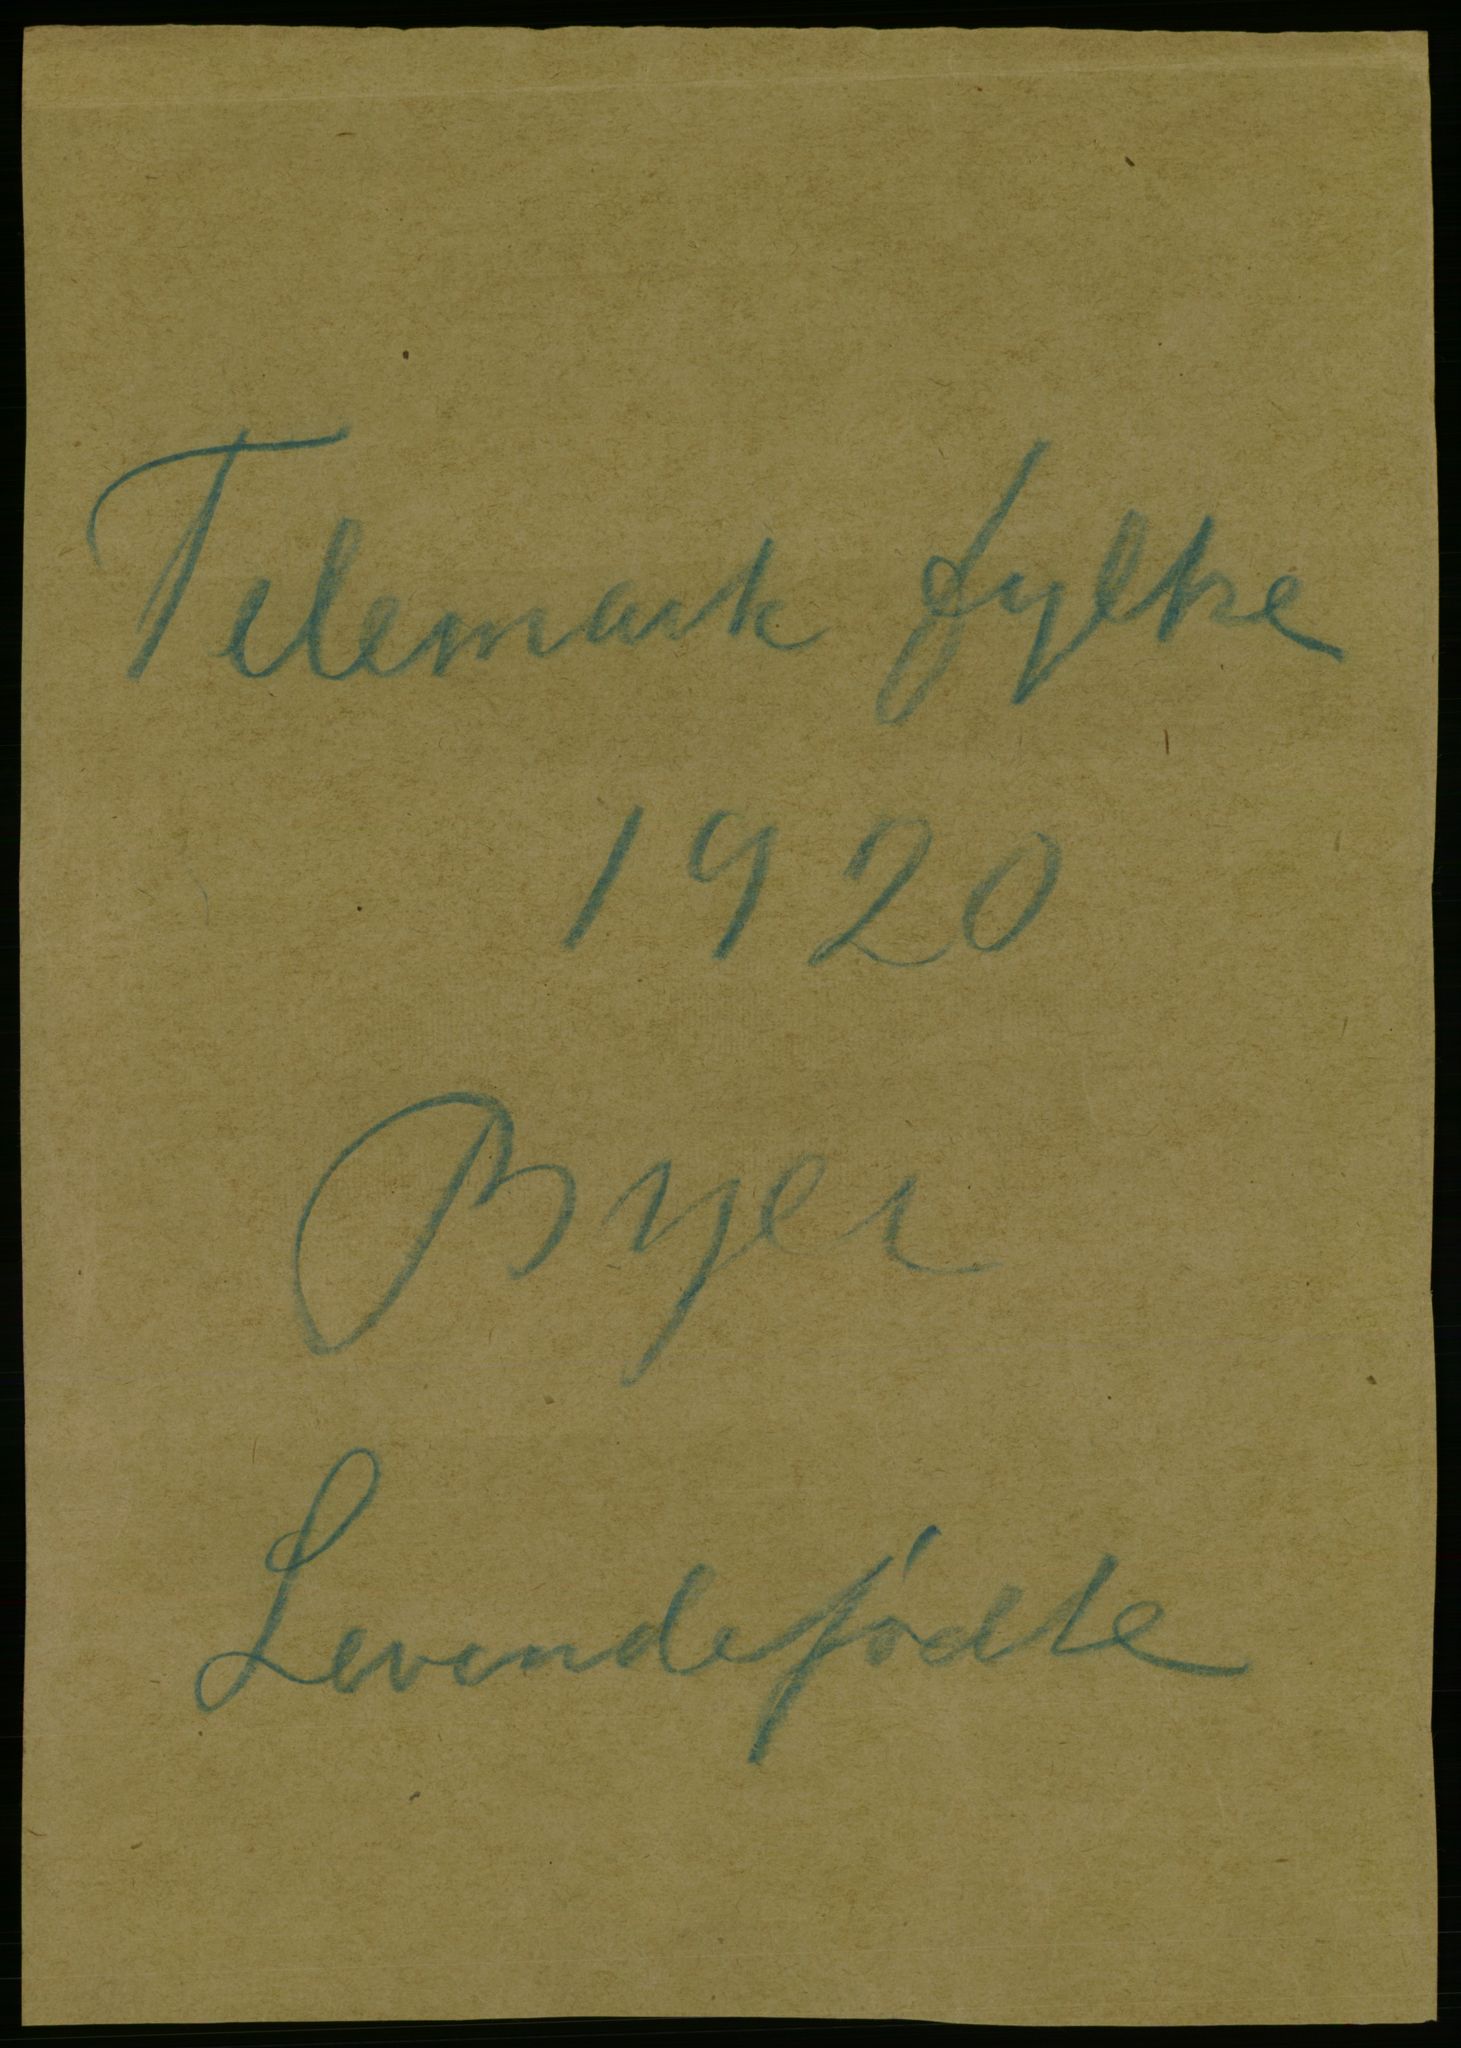 Telemark fylke
1920
Byer
Levendefødte